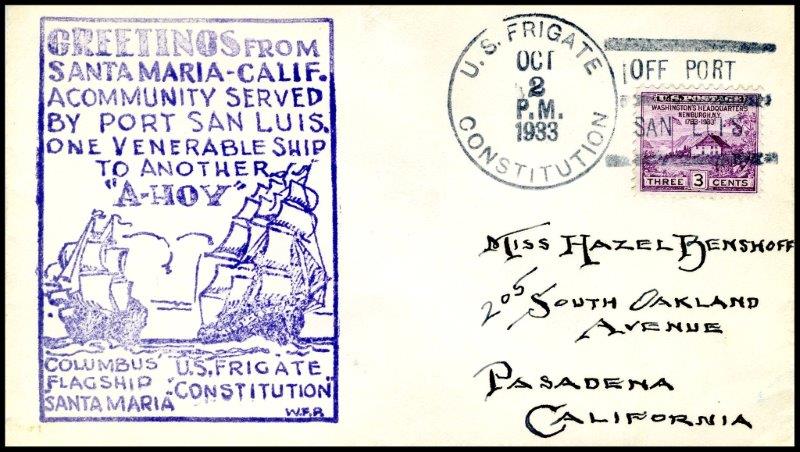 GREETINGS FROM
SANTA MARIA-CALIF.
A COMMUNITY SERVED
BY PORT SAN LUIS.
ONE VENERABLE SHIP
TO ANOTHER
"A-HOY"
COLUMBUS'
FLAGSHIP
SANTA MARIA
U.S. FRIGATE
"CONSTITUTION"
W.F.R.
U.S. FRIGATE
OCT
2
P.M.
1933
CONSTITUTION
OFF PORT
SAN LUIS
U.S. POSTAGE
WASHINGTON'S HEADQUARTERS
NEWBURGH, N.Y.
1783-1933
THREE 3 CENTS
MISS HAZEL BENSHOFF
205 SOUTH OAKLAND
AVENUE
PASADENA
CALIFORNIA